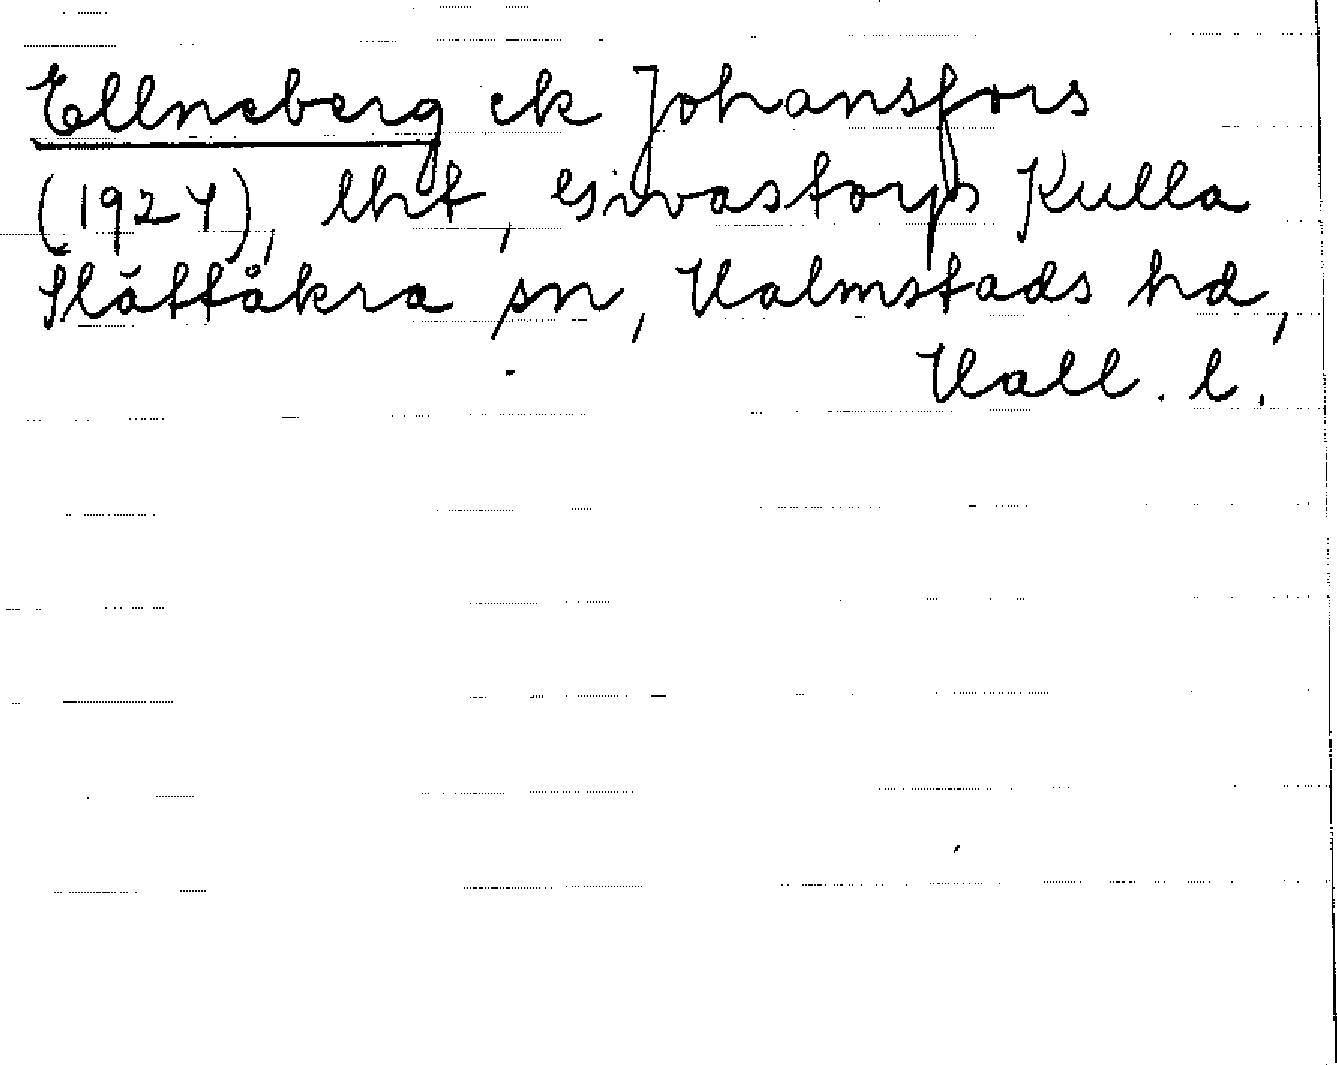 Ellneberg ek Johansfors
(1924), lht, Sivastorps Kulla
Slättåkra sn, Halmstads hd,
Hall. l.